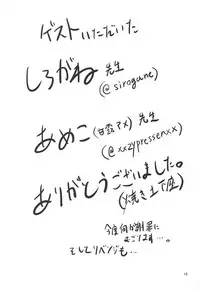 ゲストいただいた
しろがね 先生
(@sirogane)
あめこ(甘露アメ) 先生
(@xxzypressenxx)
ありがとうございました。
(焼き土下座)
今度何か謝罪に
むごります…。
そしてリベンジも…。